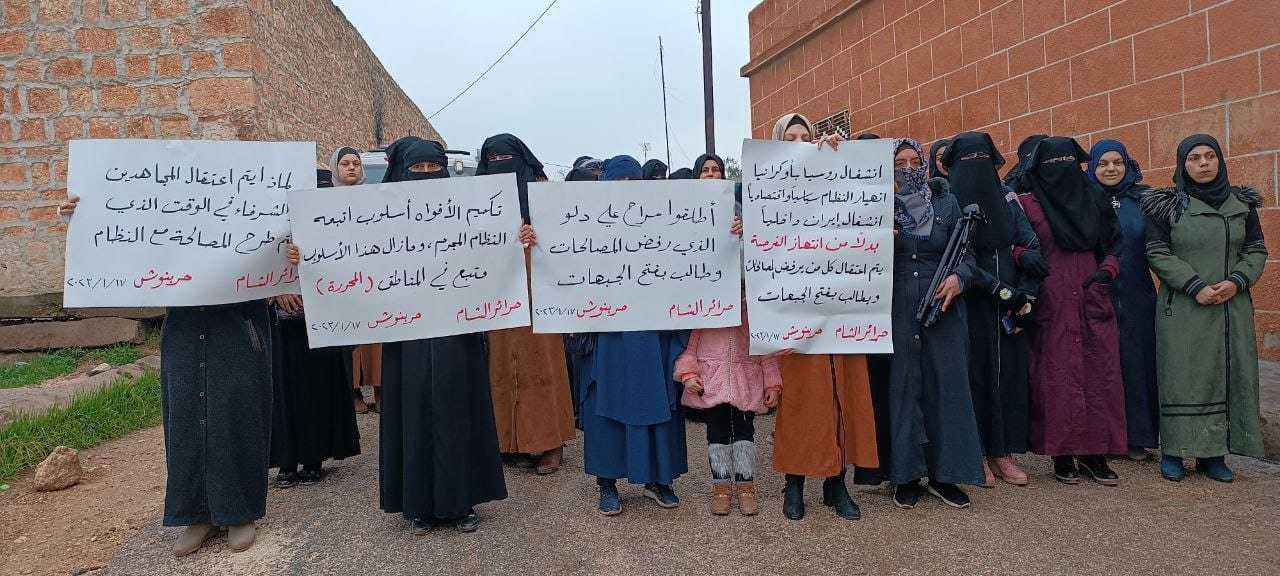 لماذا يتم اعتقال المجاهدين
الشرفاء في الوقت الذي
يتم طرح المصالحة مع النظام
حرائر الشام حربنوش ٢٠٢٣/١/١٧
تكميم الأفواه أسلوب اتبعه
النظام المجرم، ومازال هذا الأسلوب
متبع في المناطق (المحررة)
حرائر الشام حربنوش ٢٠٢٣/١/١٧
أطلقوا سراح علي دلو
الذي رفض المصالحات
وطالب بفتح الجبهات
حرائر الشام حربنوش ٢٠٢٣/١/١٧
انشغال روسيا بأوكرانيا
انهيار النظام سياسياً واقتصادياً
انشغال إيران داخلياً
بدلاً من انتهاز الفرصة
يتم اعتقال كل من يرفض المصالحات
ويطالب بفتح الجبهات
حرائر الشام حربنوش ٢٠٢٣/١/١٧